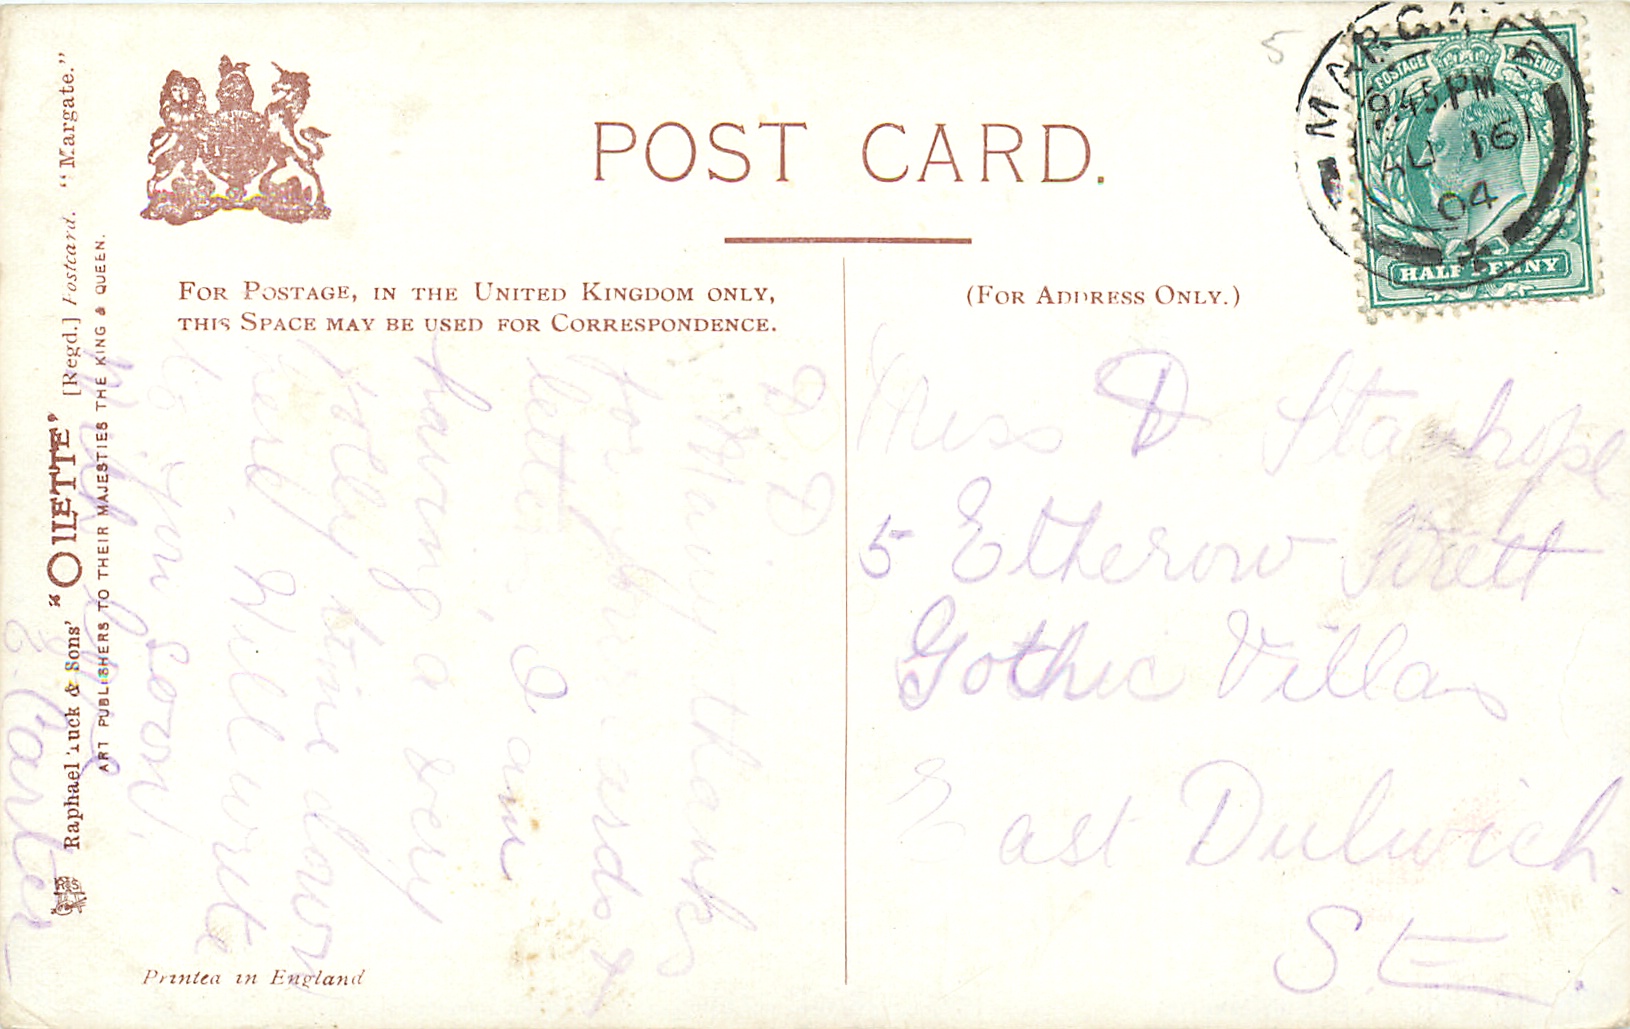 POST CARD.
FOR POSTAGE, IN THE UNITED KINGDOM ONLY,
THIS SPACE MAY BE USED FOR CORRESPONDENCE.
(FOR ADDRESS ONLY.)
MARGATE
9.45 PM
16
04
POSTAGE & REVENUE
HALFPENNY
5
Miss D Stanhope
5 Etherow Street
Gothic Villas
East Dulwich.
S E.
D D
Many thanks
for &
letter, I am
having a very
jolly time down
here. Will write
to you soon.
With love
E. Carter
Raphael Tuck & Sons' "OILETTE" [Regd.] Postcard. "Margate."
ART PUBLISHERS TO THEIR MAJESTIES THE KING & QUEEN.
Printed in England